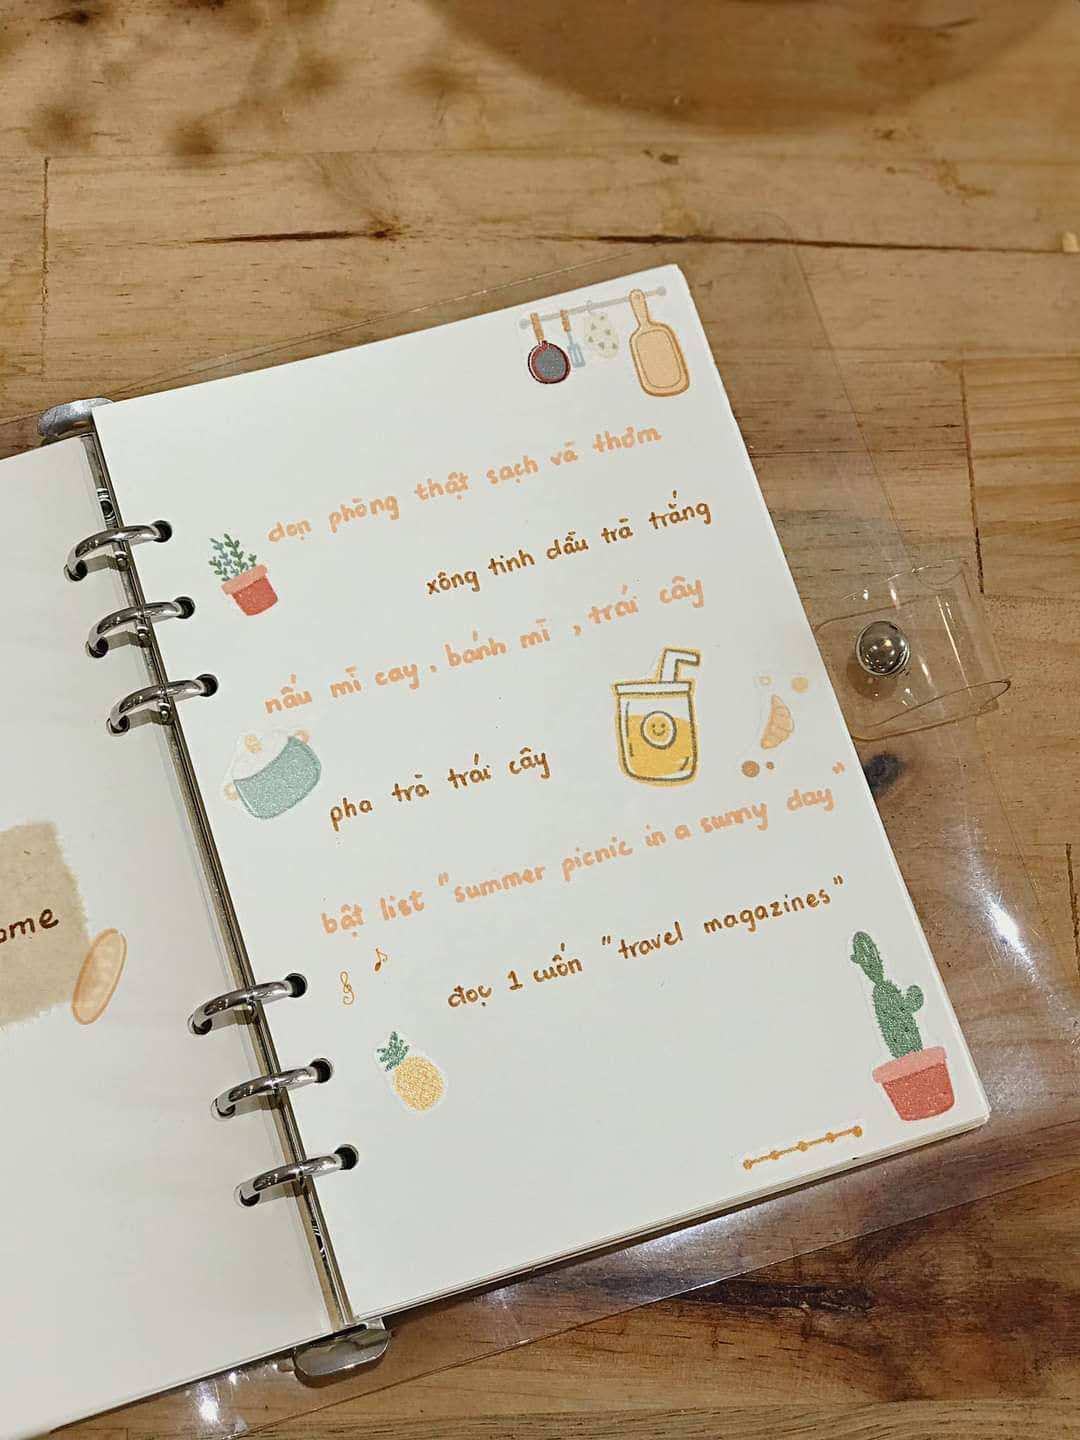 dọn phòng thật sạch và thơm
xông tinh dầu trà trắng
nấu mì cay, bánh mì, trái cây
pha trà trái cây
bật list "summer picnic in a sunny day"
đọc 1 cuốn "travel magazines"